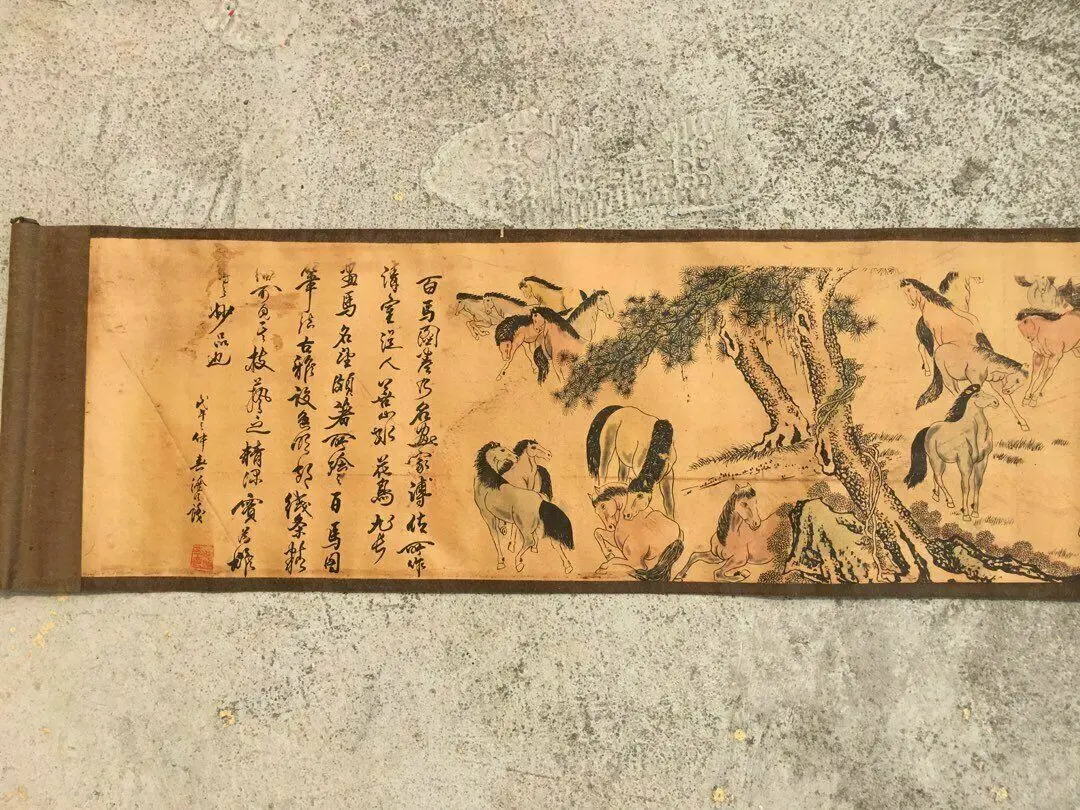 百馬圖卷乃名畫家溥佐所作
清室後人善山水花鳥尤長
畫馬名望頗著所繪百馬圖
筆法古雅設色明朗线条精
細可見其技藝之精深實為難
得妙品也
戊午仲春